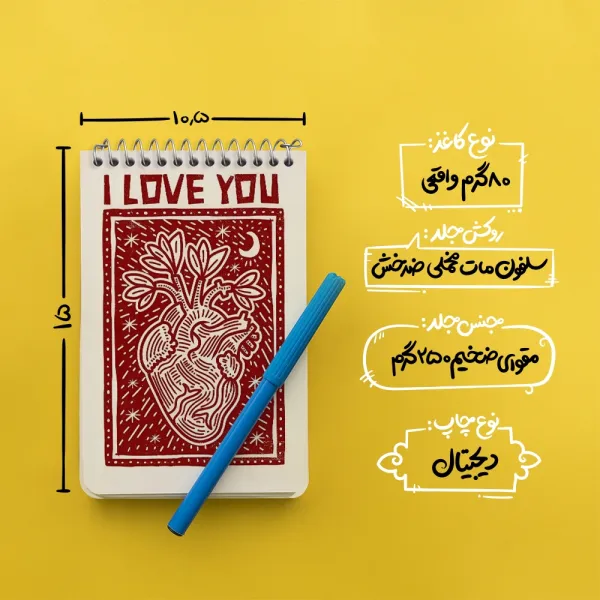 ۱۰٫۵
I LOVE YOU
۱۵
نوع کاغذ:
۸۰ گرم واقعی
روکش جلد:
سلفون مات مخملی ضدخش
جنس جلد:
مقوای ضخیم ۲۵۰ گرم
نوع چاپ:
دیجیتال